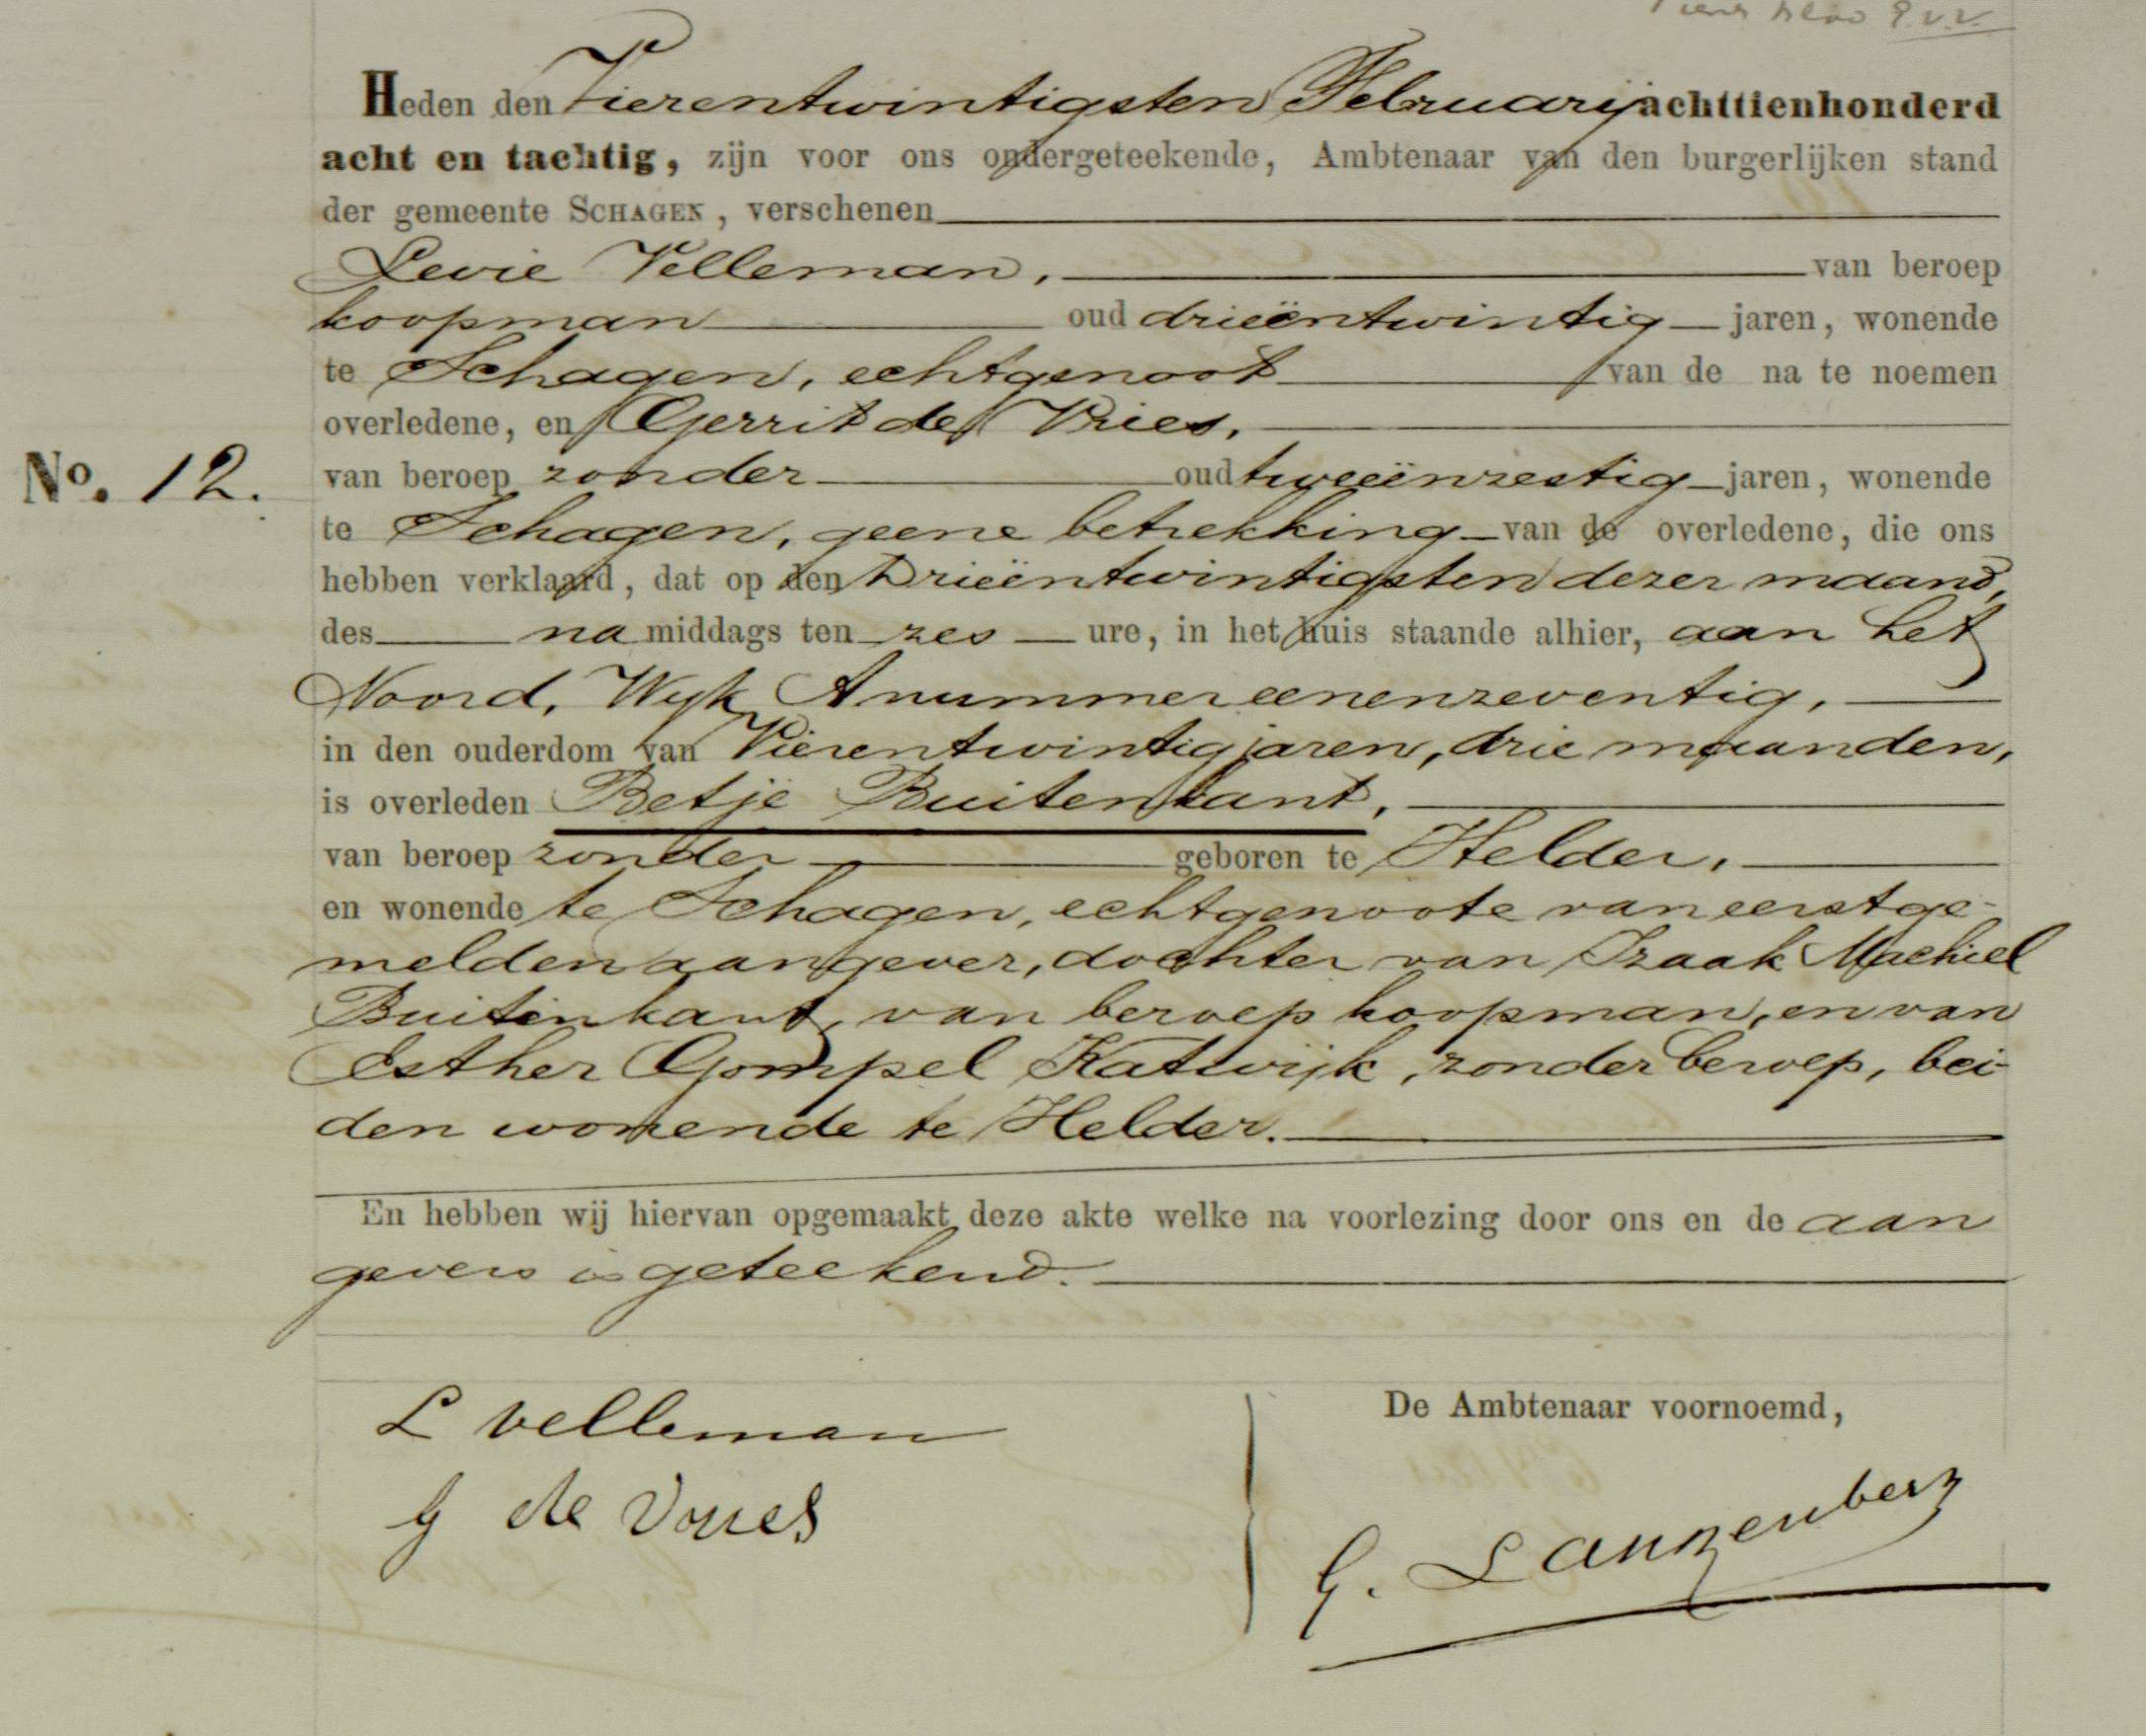 Heden den Vierentwintigsten Februarij achttienhonderd
acht en tachtig, zijn voor ons ondergeteekende, Ambtenaar van den burgerlijken stand
der gemeente SCHAGEN, verschenen
Levie Velleman, van beroep
koopman oud drieëntwintig jaren, wonende
te Schagen, echtgenoot van de na te noemen
overledene, en Gerrit de Vries,
No. 12.
van beroep zonder oud tweeënzestig jaren, wonende
te Schagen, geene betrekking van de overledene, die ons
hebben verklaard, dat op den Drieëntwintigsten dezer maand,
des na middags ten zes ure, in het huis staande alhier, aan het
Noord, Wijk A nummer eenenzeventig,
in den ouderdom van Vierentwintig jaren, drie maanden,
is overleden Betje Buitenkant,
van beroep zonder geboren te Helder,
en wonende te Schagen, echtgenoote van eerstge-
melden aangever, dochter van Izaak Machiel
Buitenkant, van beroep koopman, en van
Esther Gompel Katwijk, zonder beroep, bei-
den wonende te Helder.
En hebben wij hiervan opgemaakt deze akte welke na voorlezing door ons en de aan
gevers is geteekend.
De Ambtenaar voornoemd,
L Velleman
G de Vries
G. Langenberg